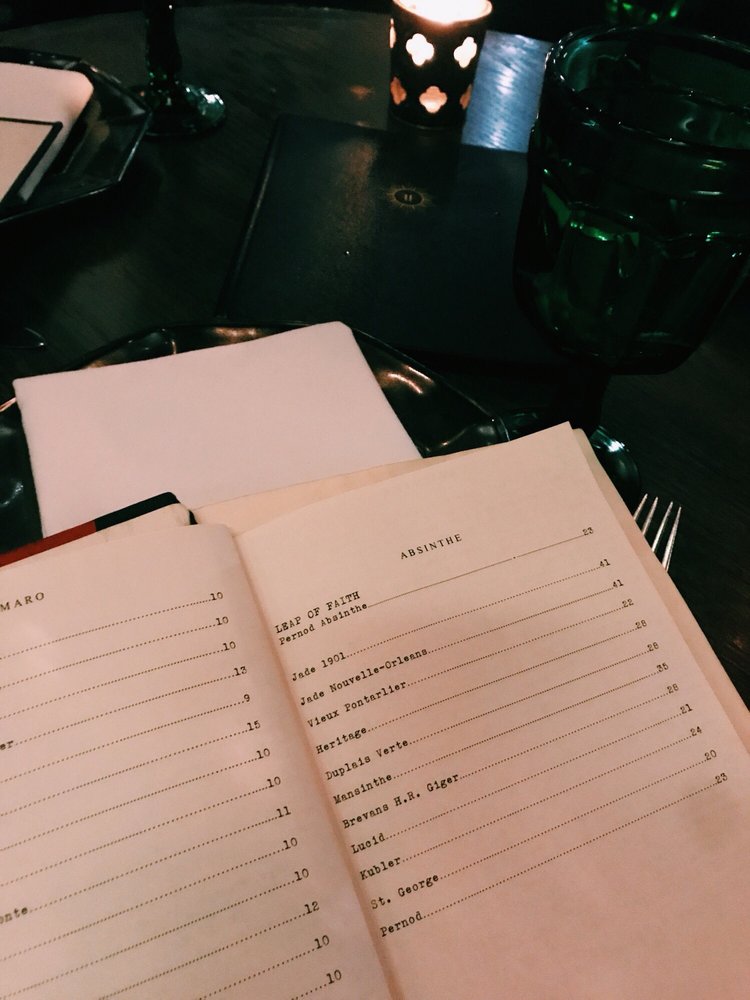 MARO
10
10
10
13
er 9
15
10
10
11
10
onte 10
12
10
10
ABSINTHE
LEAP OF FAITH
Pernod Absinthe 23
Jade 1901 41
Jade Nouvelle-Orleans 41
Vieux Pontarlier 22
Heritage 28
Duplais Verte 28
Mansinthe 35
Brevans H.R. Giger 28
Lucid 21
Kubler 24
St. George 20
Pernod 23